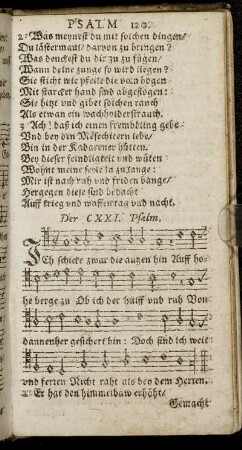 PSALM 120.
2 Was meynest du mit solchen dingen/
Du lästermaul/ darvon zu bringen?
Was denckest du dir zu zu fügen/
Wann deine zunge so wird liegen?
Sie sticht wie pfeile die vom bogen
Mit starcker hand sind abgeflogen:
Sie hitzt und gibet solchen rauch
Als etwan ein wachholderstrauch.
3 Ach! daß ich einen frembdling gebe
Und bey den Mesechitern lebe/
Bin in der Kadarener hütten.
Bey dieser feindligkeit und wüten
Wohnt meine seele la zu lange:
Mir ist nach ruh und frieden bange/
Hergegen diese sind bedacht
Auff krieg und waffentrag und nacht.
Der CXXI. Psalm.
ICh schicke zwar die augen hin Auff ho-
he berge zu Ob ich der hülff und ruh Von
dannenher gesichert bin: Doch sind ich weit
und fernen Nicht raht als bey dem Herren.
2 Er hat den himmelbaw erhöht/
Gemacht